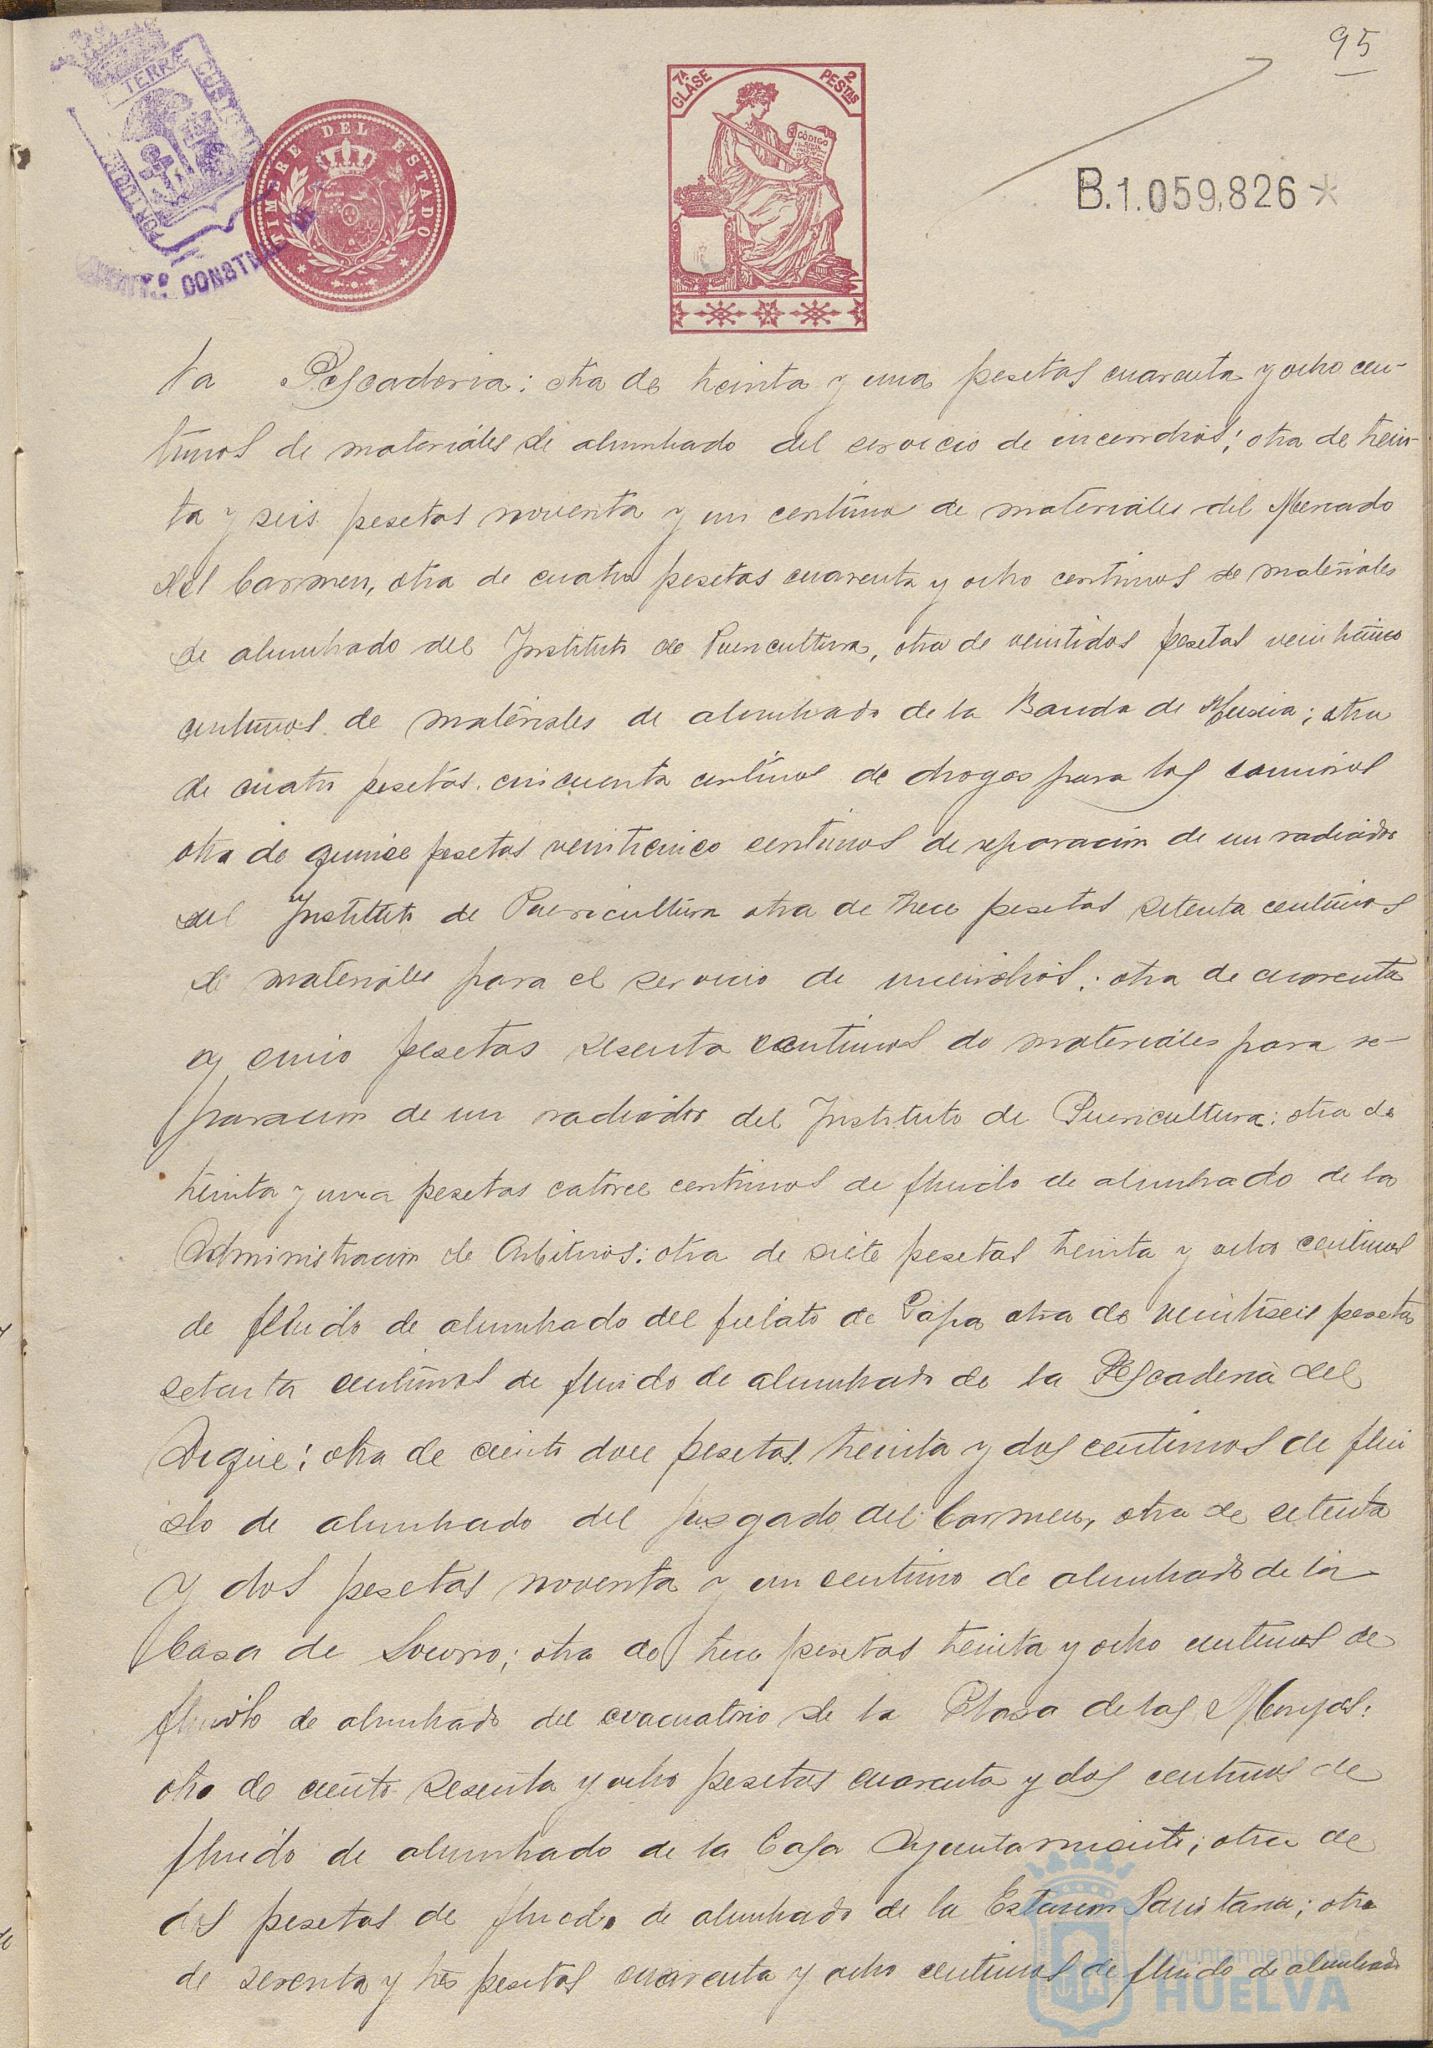 95
7ª CLASE
2 PESTAS
CÓDIGO
TIMBRE DEL ESTADO
TERRÆ
CONSTNAL
B.1.059,826*
la Pescaderia; otra de treinta y una pesetas cuarenta y ocho cen-
timos de materiales de alumbrado del servicio de incendios; otra de trein-
ta y seis pesetas noventa y un centimo de materiales del Mercado
del Carmen, otra de cuatro pesetas cuarenta y ocho centimos de materiales
de alumbrado del Instituto de Puericultura, otra de veintidos pesetas veinticinco
centimos de materiales de alumbrado de la Banda de Musica; otra
de cuatro pesetas cincuenta centimos de drogas para los
otra de quince pesetas veinticinco centimos de reparacion de un radiador
del Instituto de Puericultura otra de trece pesetas setenta centimos
de materiales para el servicio de incendios; otra de cuarenta
y cinco pesetas sesenta centimos de materiales para re-
paracion de un radiador del Instituto de Puericultura; otra de
treinta y una pesetas catorce centimos de fluido de alumbrado de la
Administracion de Arbitrios; otra de siete pesetas treinta y ocho centimos
de fluido de alumbrado del fielato de otra de veintiseis pesetas
setenta centimos de fluido de alumbrado de la Pescaderia del
Dique; otra de ciento doce pesetas treinta y dos centimos de flui
do de alumbrado del Jusgado del Carmen, otra de setenta
y dos pesetas noventa y un centimo de alumbrado de la
Casa de Socorro; otra de trece pesetas treinta y ocho centimos de
fluido de alumbrado del evacuatorio de la Plasa de las Monjas;
otra de ciento sesenta y ocho pesetas cuarenta y dos centimos de
fluido de alumbrado de la Casa Ayuntamiento; otra de
dos pesetas de fluido de alumbrado de la Estacion Sanitaria; otra
de y tres pesetas cuarenta y ocho centimos de fluido de alumbrado
Ayuntamiento de
HUELVA